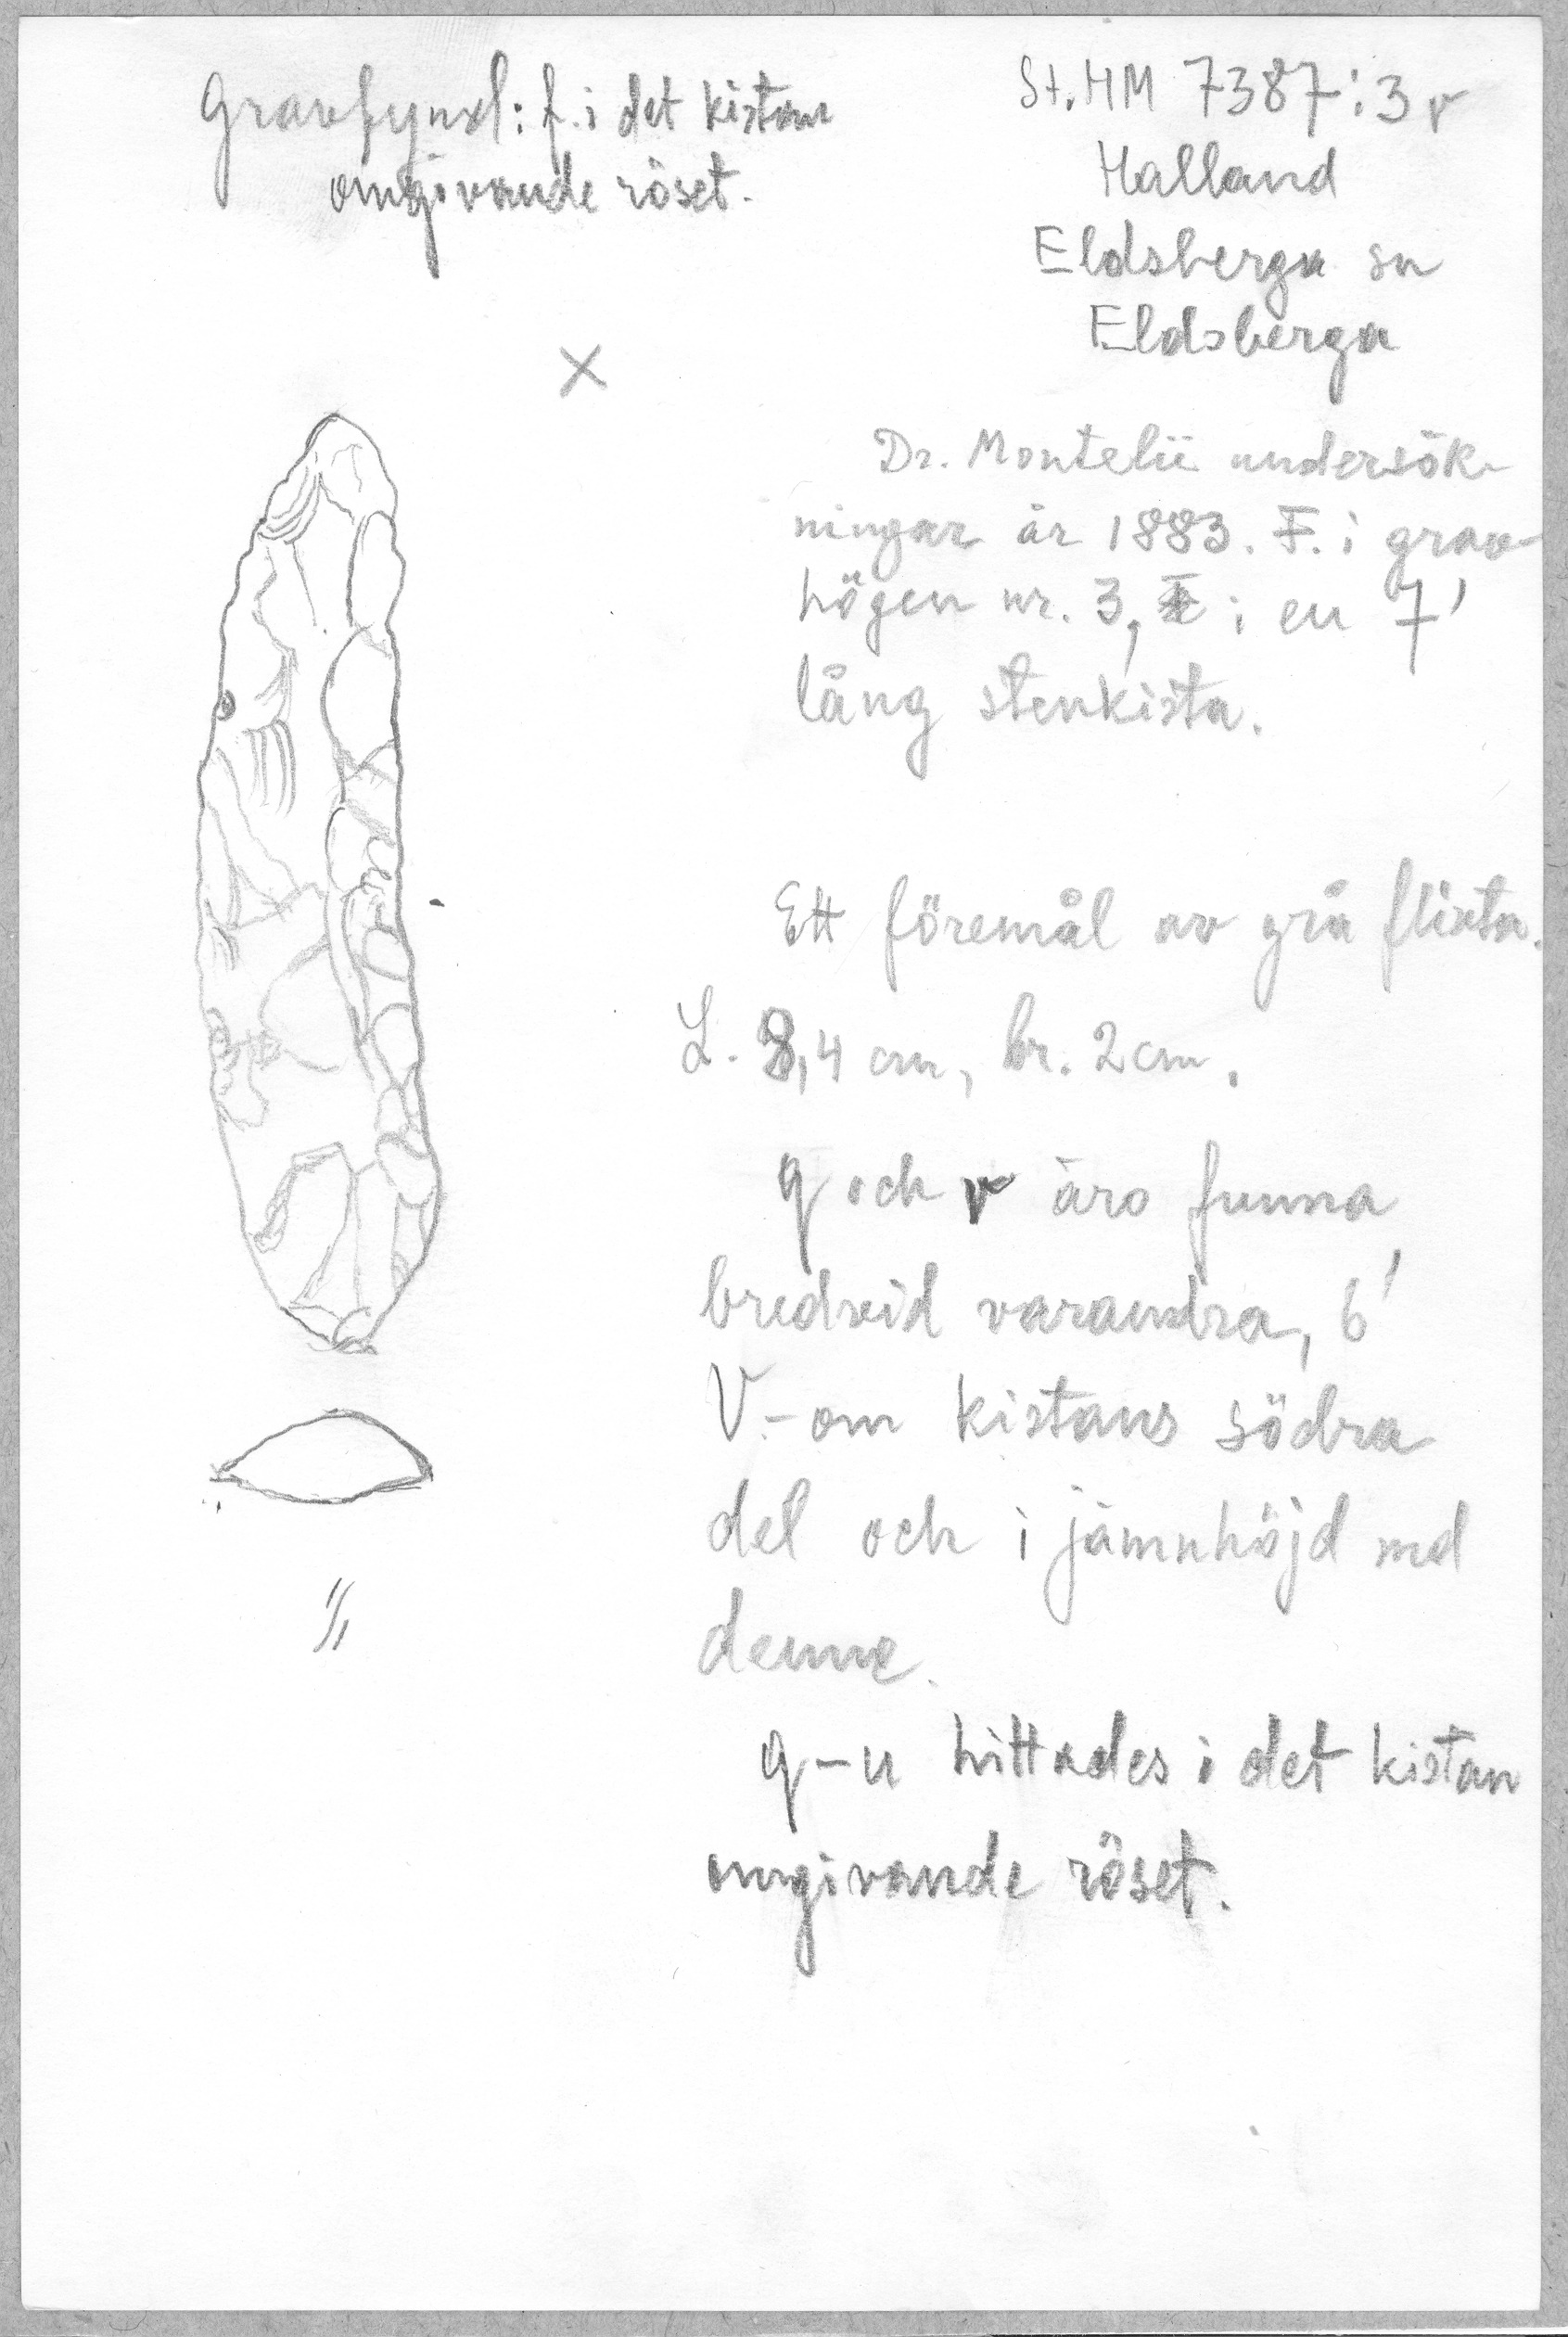 Gravfynd: f. i det kistan
omgivande röset.
St. HM 7387:3 r
Halland
Eldsberga sn
Eldsberga
X
Dr. Montelii undersök-
ningar år 1883. F. i grav-
högen nr. 3, i en 7'
lång stenkista.
Ett föremål av grå flinta.
L. 8,4 cm, br. 2 cm.
q och r äro funna
bredvid varandra, 6'
V.-om kistans södra
del och i jämnhöjd med
denne.
q-u hittades i det kistan
omgivande röset.
1/1